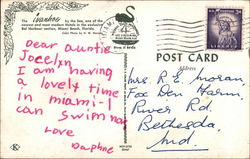 The Ivanhoe by the Sea, one of the
newest and most modern Hotels in the exclusive
Bal Harbour section, Miami Beach, Florida.
MIAMI
Dear auntie
Jocelyn
I am having
a lovely time
in miami - I
can swim now
Love
Daphne
POST CARD
Address
LIBERTY
Mrs. R. E. Moran,
Fox Den Farm
River Rd.
Bethesda,
Md.
K